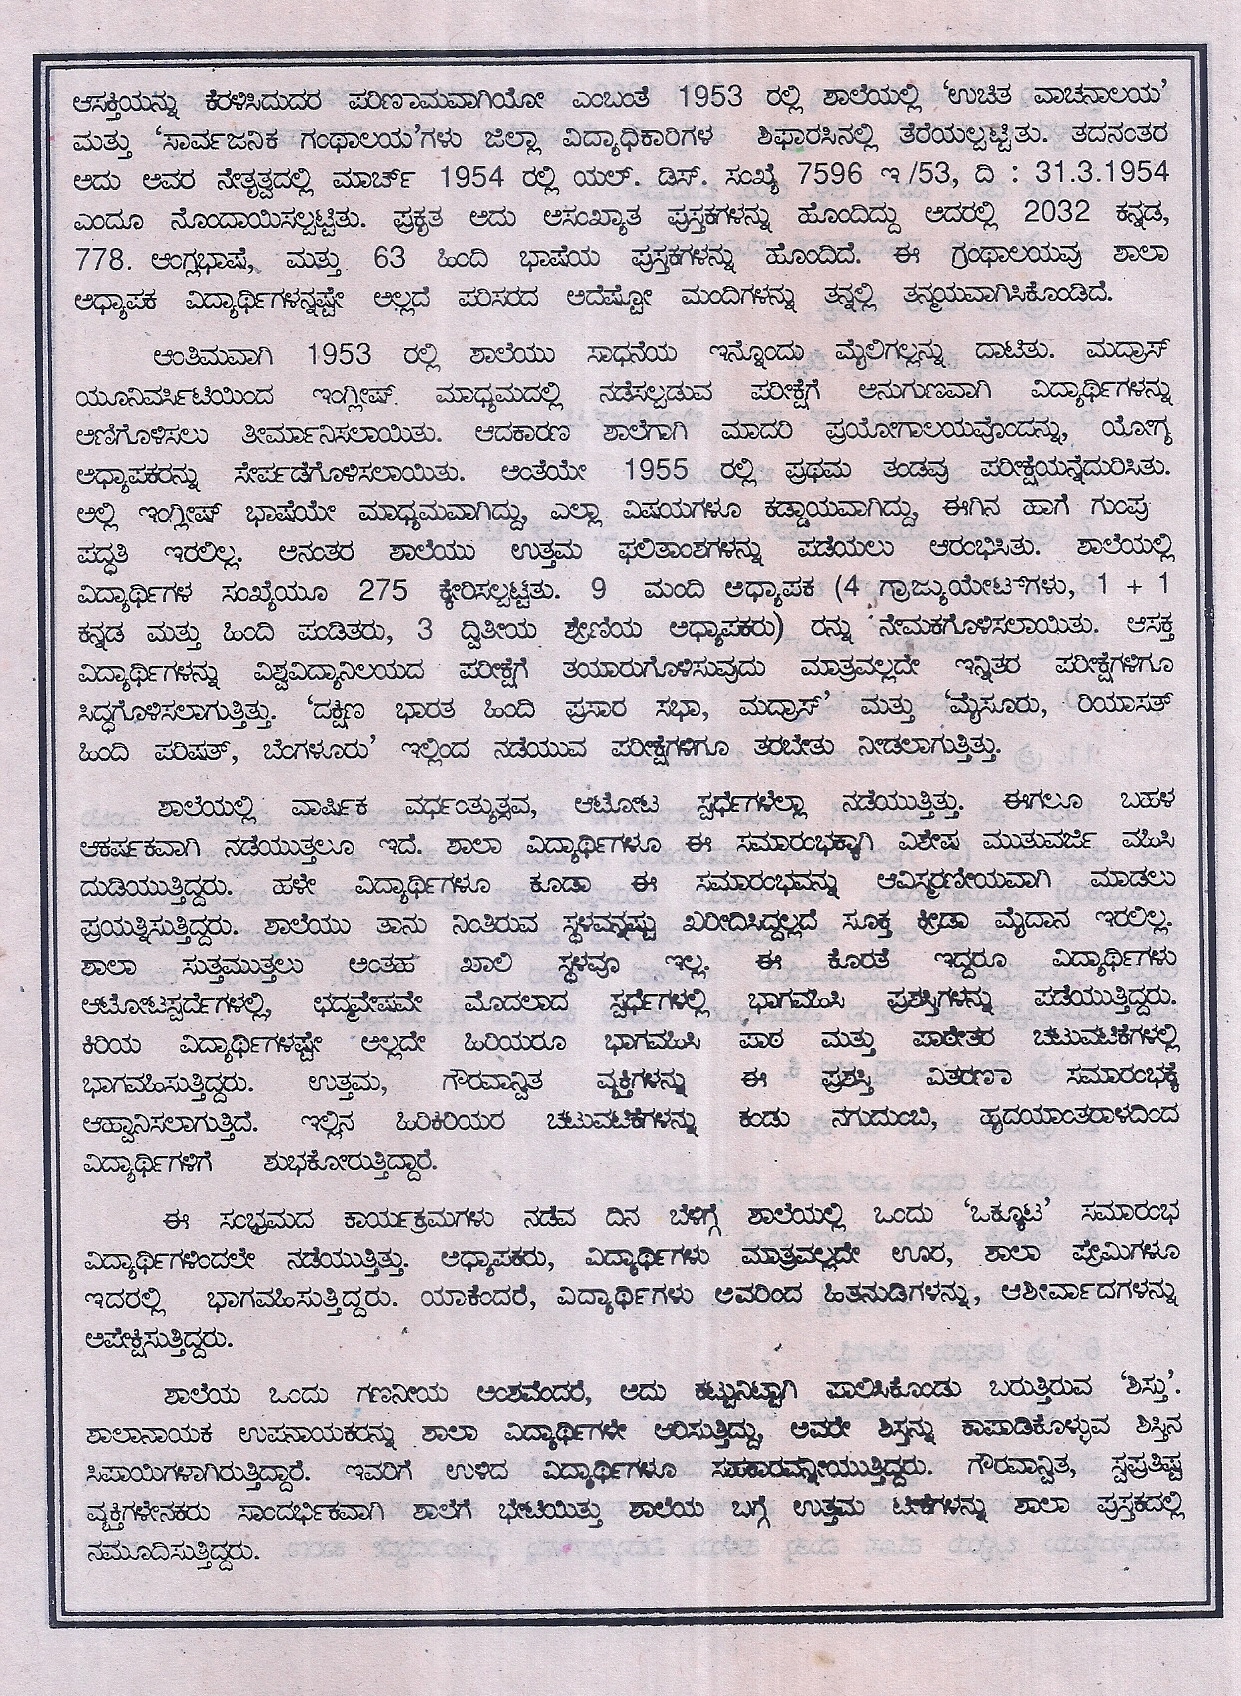 ಆಸಕ್ತಿಯನ್ನು ಕೆರಳಿಸಿದುದರ ಪರಿಣಾಮವಾಗಿಯೋ ಎಂಬಂತೆ 1953 ರಲ್ಲಿ ಶಾಲೆಯಲ್ಲಿ ‘ಉಚಿತ ವಾಚನಾಲಯ’
ಮತ್ತು ‘ಸಾರ್ವಜನಿಕ ಗಂಥಾಲಯ’ಗಳು ಜಿಲ್ಲಾ ವಿದ್ಯಾಧಿಕಾರಿಗಳ ಶಿಫಾರಸಿನಲ್ಲಿ ತೆರೆಯಲ್ಪಟ್ಟಿತು. ತದನಂತರ
ಅದು ಅವರ ನೇತೃತ್ವದಲ್ಲಿ ಮಾರ್ಚ್ 1954 ರಲ್ಲಿ ಯಲ್. ಡಿಸ್. ಸಂಖ್ಯೆ 7596 ಇ /53, ದಿ : 31.3.1954
ಎಂದೂ ನೊಂದಾಯಿಸಲ್ಪಟ್ಟಿತು. ಪ್ರಕೃತ ಅದು ಅಸಂಖ್ಯಾತ ಪುಸ್ತಕಗಳನ್ನು ಹೊಂದಿದ್ದು ಅದರಲ್ಲಿ 2032 ಕನ್ನಡ,
778. ಆಂಗ್ಲಭಾಷೆ, ಮತ್ತು 63 ಹಿಂದಿ ಭಾಷೆಯ ಪುಸ್ತಕಗಳನ್ನು ಹೊಂದಿದೆ. ಈ ಗ್ರಂಥಾಲಯವು ಶಾಲಾ
ಅಧ್ಯಾಪಕ ವಿದ್ಯಾರ್ಥಿಗಳನ್ನಷ್ಟೇ ಅಲ್ಲದೆ ಪರಿಸರದ ಅದೆಷ್ಟೋ ಮಂದಿಗಳನ್ನು ತನ್ನಲ್ಲಿ ತನ್ಮಯವಾಗಿಸಿಕೊಂಡಿದೆ.
ಅಂತಿಮವಾಗಿ 1953 ರಲ್ಲಿ ಶಾಲೆಯು ಸಾಧನೆಯ ಇನ್ನೊಂದು ಮೈಲಿಗಲ್ಲನ್ನು ದಾಟಿತು. ಮದ್ರಾಸ್
ಯೂನಿವರ್ಸಿಟಿಯಿಂದ ಇಂಗ್ಲೀಷ್ ಮಾಧ್ಯಮದಲ್ಲಿ ನಡೆಸಲ್ಪಡುವ ಪರೀಕ್ಷೆಗೆ ಅನುಗುಣವಾಗಿ ವಿದ್ಯಾರ್ಥಿಗಳನ್ನು
ಅಣಿಗೊಳಿಸಲು ತೀರ್ಮಾನಿಸಲಾಯಿತು. ಆದಕಾರಣ ಶಾಲೆಗಾಗಿ ಮಾದರಿ ಪ್ರಯೋಗಾಲಯವೊಂದನ್ನು, ಯೋಗ್ಯ
ಅಧ್ಯಾಪಕರನ್ನು ಸೇರ್ಪಡೆಗೊಳಿಸಲಾಯಿತು. ಅಂತೆಯೇ 1955 ರಲ್ಲಿ ಪ್ರಥಮ ತಂಡವು ಪರೀಕ್ಷೆಯನ್ನೆದುರಿಸಿತು.
ಅಲ್ಲಿ ಇಂಗ್ಲೀಷ್ ಭಾಷೆಯೇ ಮಾಧ್ಯಮವಾಗಿದ್ದು, ಎಲ್ಲಾ ವಿಷಯಗಳೂ ಕಡ್ಡಾಯವಾಗಿದ್ದು, ಈಗಿನ ಹಾಗೆ ಗುಂಪು
ಪದ್ಧತಿ ಇರಲಿಲ್ಲ. ಅನಂತರ ಶಾಲೆಯು ಉತ್ತಮ ಫಲಿತಾಂಶಗಳನ್ನು ಪಡೆಯಲು ಆರಂಭಿಸಿತು. ಶಾಲೆಯಲ್ಲಿ
ವಿದ್ಯಾರ್ಥಿಗಳ ಸಂಖ್ಯೆಯೂ 275 ಕ್ಕೇರಿಸಲ್ಪಟ್ಟಿತು. 9 ಮಂದಿ ಅಧ್ಯಾಪಕ (4 ಗ್ರಾಜ್ಯುಯೇಟ್‌ಗಳು, 1 + 1
ಕನ್ನಡ ಮತ್ತು ಹಿಂದಿ ಪಂಡಿತರು, 3 ದ್ವಿತೀಯ ಶ್ರೇಣಿಯ ಅಧ್ಯಾಪಕರು) ರನ್ನು ನೇಮಕಗೊಳಿಸಲಾಯಿತು. ಆಸಕ್ತ
ವಿದ್ಯಾರ್ಥಿಗಳನ್ನು ವಿಶ್ವವಿದ್ಯಾನಿಲಯದ ಪರೀಕ್ಷೆಗೆ ತಯಾರುಗೊಳಿಸುವುದು ಮಾತ್ರವಲ್ಲದೇ ಇನ್ನಿತರ ಪರೀಕ್ಷೆಗಳಿಗೂ
ಸಿದ್ಧಗೊಳಿಸಲಾಗುತ್ತಿತ್ತು. ‘ದಕ್ಷಿಣ ಭಾರತ ಹಿಂದಿ ಪ್ರಸಾರ ಸಭಾ, ಮದ್ರಾಸ್’ ಮತ್ತು ‘ಮೈಸೂರು, ರಿಯಾಸತ್
ಹಿಂದಿ ಪರಿಷತ್, ಬೆಂಗಳೂರು’ ಇಲ್ಲಿಂದ ನಡೆಯುವ ಪರೀಕ್ಷೆಗಳಿಗೂ ತರಬೇತು ನೀಡಲಾಗುತ್ತಿತ್ತು.
ಶಾಲೆಯಲ್ಲಿ ವಾರ್ಷಿಕ ವರ್ಧಂತ್ಯುತ್ಸವ, ಆಟೋಟ ಸ್ಪರ್ಧೆಗಳೆಲ್ಲಾ ನಡೆಯುತ್ತಿತ್ತು. ಈಗಲೂ ಬಹಳ
ಆಕರ್ಷಕವಾಗಿ ನಡೆಯುತ್ತಲೂ ಇದೆ. ಶಾಲಾ ವಿದ್ಯಾರ್ಥಿಗಳೂ ಈ ಸಮಾರಂಭಕ್ಕಾಗಿ ವಿಶೇಷ ಮುತುವರ್ಜಿ ವಹಿಸಿ
ದುಡಿಯುತ್ತಿದ್ದರು. ಹಳೇ ವಿದ್ಯಾರ್ಥಿಗಳೂ ಕೂಡಾ ಈ ಸಮಾರಂಭವನ್ನು ಆವಿಸ್ಮರಣೀಯವಾಗಿ ಮಾಡಲು
ಪ್ರಯತ್ನಿಸುತ್ತಿದ್ದರು. ಶಾಲೆಯು ತಾನು ನಿಂತಿರುವ ಸ್ಥಳವನ್ನಷ್ಟು ಖರೀದಿಸಿದ್ದಲ್ಲದೆ ಸೂಕ್ತ ಕ್ರೀಡಾ ಮೈದಾನ ಇರಲಿಲ್ಲ.
ಶಾಲಾ ಸುತ್ತಮುತ್ತಲು ಅಂತಹ ಖಾಲಿ ಸ್ಥಳವೂ ಇಲ್ಲ. ಈ ಕೊರತೆ ಇದ್ದರೂ ವಿದ್ಯಾರ್ಥಿಗಳು
ಆಟೋಟಸ್ಪರ್ದೆಗಳಲ್ಲಿ, ಛದ್ಮವೇಷವೇ ಮೊದಲಾದ ಸ್ಪರ್ಧೆಗಳಲ್ಲಿ ಭಾಗವಹಿಸಿ ಪ್ರಶಸ್ತಿಗಳನ್ನು ಪಡೆಯುತ್ತಿದ್ದರು.
ಕಿರಿಯ ವಿದ್ಯಾರ್ಥಿಗಳಷ್ಟೇ ಅಲ್ಲದೇ ಹಿರಿಯರೂ ಭಾಗವಹಿಸಿ ಪಾಠ ಮತ್ತು ಪಾಠೇತರ ಚಟುವಟಿಕೆಗಳಲ್ಲಿ
ಭಾಗವಹಿಸುತ್ತಿದ್ದರು. ಉತ್ತಮ, ಗೌರವಾನ್ವಿತ ವ್ಯಕ್ತಿಗಳನ್ನು ಈ ಪ್ರಶಸ್ತಿ ವಿತರಣಾ ಸಮಾರಂಭಕ್ಕೆ
ಆಹ್ವಾನಿಸಲಾಗುತ್ತಿದೆ. ಇಲ್ಲಿನ ಹಿರಿಕಿರಿಯರ ಚಟುವಟಿಕೆಗಳನ್ನು ಕಂಡು ನಗುದುಂಬಿ, ಹೃದಯಾಂತರಾಳದಿಂದ
ವಿದ್ಯಾರ್ಥಿಗಳಿಗೆ ಶುಭಕೋರುತ್ತಿದ್ದಾರೆ.
ಈ ಸಂಭ್ರಮದ ಕಾರ್ಯಕ್ರಮಗಳು ನಡೆವ ದಿನ ಬೆಳಿಗ್ಗೆ ಶಾಲೆಯಲ್ಲಿ ಒಂದು ‘ಒಕ್ಕೂಟ’ ಸಮಾರಂಭ
ವಿದ್ಯಾರ್ಥಿಗಳಿಂದಲೇ ನಡೆಯುತ್ತಿತ್ತು. ಅಧ್ಯಾಪಕರು, ವಿದ್ಯಾರ್ಥಿಗಳು ಮಾತ್ರವಲ್ಲದೇ ಊರ, ಶಾಲಾ ಪ್ರೇಮಿಗಳೂ
ಇದರಲ್ಲಿ ಭಾಗವಹಿಸುತ್ತಿದ್ದರು. ಯಾಕೆಂದರೆ, ವಿದ್ಯಾರ್ಥಿಗಳು ಅವರಿಂದ ಹಿತನುಡಿಗಳನ್ನು, ಆಶೀರ್ವಾದಗಳನ್ನು
ಅಪೇಕ್ಷಿಸುತ್ತಿದ್ದರು.
ಶಾಲೆಯ ಒಂದು ಗಣನೀಯ ಅಂಶವೆಂದರೆ, ಅದು ಕಟ್ಟುನಿಟ್ಟಾಗಿ ಪಾಲಿಸಿಕೊಂಡು ಬರುತ್ತಿರುವ ‘ಶಿಸ್ತು’.
ಶಾಲಾನಾಯಕ ಉಪನಾಯಕರನ್ನು ಶಾಲಾ ವಿದ್ಯಾರ್ಥಿಗಳೇ ಆರಿಸುತ್ತಿದ್ದು, ಅವರೇ ಶಿಸ್ತನ್ನು ಕಾಪಾಡಿಕೊಳ್ಳುವ ಶಿಸ್ತಿನ
ಸಿಪಾಯಿಗಳಾಗಿರುತ್ತಿದ್ದಾರೆ. ಇವರಿಗೆ ಉಳಿದ ವಿದ್ಯಾರ್ಥಿಗಳೂ ಸಹಕಾರವನ್ನೀಯುತ್ತಿದ್ದರು. ಗೌರವಾನ್ವಿತ, ಸ್ವಪ್ರತಿಷ್ಟ
ವ್ಯಕ್ತಿಗಳೇನಕರು ಸಾಂದರ್ಭಿಕವಾಗಿ ಶಾಲೆಗೆ ಭೇಟಿಯಿತ್ತು ಶಾಲೆಯ ಬಗ್ಗೆ ಉತ್ತಮ ಟೀಕೆಗಳನ್ನು ಶಾಲಾ ಪುಸ್ತಕದಲ್ಲಿ
ನಮೂದಿಸುತ್ತಿದ್ದರು.